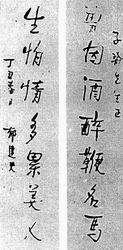 先生正
曾因酒醉鞭名馬
生怕情多累美人
丁丑春日
郁達夫